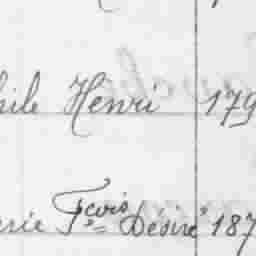 hile Henri 179
erie Fcois Désiré 187